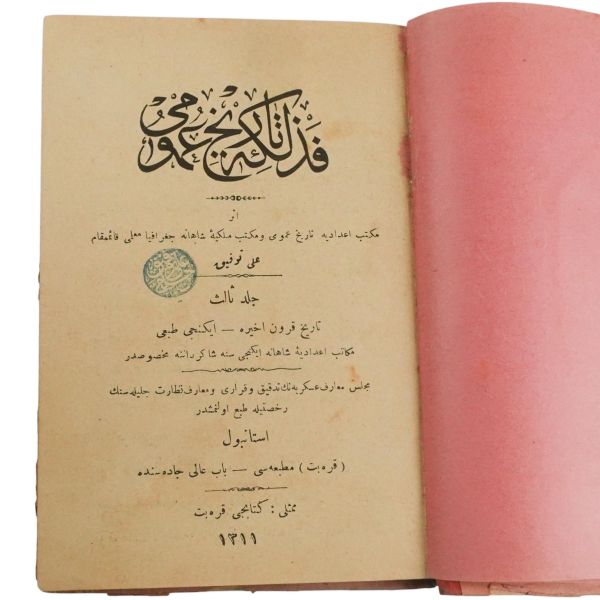 فذلكهٔ تاریخ عمومی
اثر
مكتب اعدادیه تاریخ عمومی ومكتب ملكیهٔ شاهانه جغرافیا معلمی قائممقام
علی توفیق
جلد ثالث
تاریخ قرون اخیره — ایكنجی طبعی
مكاتب اعدادیهٔ شاهانه ایكنجی سنه شاكرداننه مخصوصدر
مجلس معارف عسكریه‌نك تدقیق وقراری ومعارف نظارت جلیله‌سنك
رخصتیله طبع اولنمشدر
استانبول
( قره‌بت ) مطبعه‌سی — باب عالی جاده‌سنده
ممثلی : كتابجی قره‌بت
١٣١١